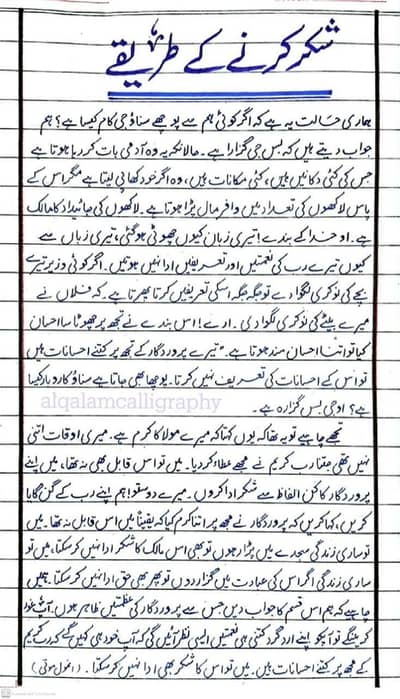 شکر کرنے کے طریقے
ہماری حالت یہ ہے کہ اگر کوئی ہم سے پوچھے سناؤ جی کام کیسا ہے؟ ہم
جواب دیتے ہیں کہ بس جی گزارا ہے۔ حالانکہ یہ وہ آدمی بات کر رہا ہوتا ہے
جس کی کئی دکانیں ہیں، کئی مکانات ہیں، وہ اگر خود کھا پی لیتا ہے مگر اس کے
پاس لاکھوں کی تعداد میں وافر مال پڑا ہوتا ہے۔ لاکھوں کی جائیداد کا مالک
ہے۔ او خدا کے بندے! تیری زبان کیوں چھوٹی ہو گئی، تیری زباں سے
کیوں تیرے رب کی نعمتیں اور تعریفیں ادا نہیں ہوتیں۔ اگر کوئی وزیر تیرے
بچے کی نوکری لگوا دے تو جگہ جگہ اسکی تعریفیں کرتا پھرتا ہے۔ کہ فلاں نے
میرے بیٹے کی نوکری لگوا دی۔ ارے! اس بندے نے تجھ پر چھوٹا سا احسان
کیا تو اتنا احسان مند ہوتا ہے۔ تیرے پروردگار کے تجھ پر کتنے احسانات ہیں
تو اس کے احسانات کی تعریف نہیں کرتا۔ پوچھا بھی جاتا ہے سناؤ کاروبار کیسا
ہے؟ او جی بس گزارہ ہے۔
alqalamcalligraphy
تجھے چاہیے تو یہ تھا کہ یوں کہتا کہ میرے مولا کا کرم ہے۔ میری اوقات اتنی
نہیں تھی جتنا رب کریم نے مجھے عطا کر دیا۔ میں تو اس قابل بھی نہ تھا، میں اپنے
پروردگار کا کن الفاظ سے شکر ادا کروں۔ میرے دوستو! ہم اپنے رب کے گن گایا
کریں، کہا کریں کہ پروردگار نے مجھ پر اتنا کرم کیا کہ یقیناً میں اس قابل نہ تھا۔ میں
تو ساری زندگی سجدے میں پڑا رہوں تو بھی اس مالک کا شکر ادا نہیں کر سکتا، میں تو
ساری زندگی اگر اس کی عبادت میں گزار دوں تو پھر بھی حق ادا نہیں کر سکتا۔ ہمیں
چاہیے کہ ہم اس قسم کا جواب دیں جس سے پروردگار کی عظمتیں ظاہر ہوں۔ آپ غور
کریں گے تو آپکو اپنے ارد گرد کتنی ہی نعمتیں ایسی نظر آئیں گی کہ آپ خود ہی کہیں گے کہ رب کریم
کے مجھ پر کتنے احسانات ہیں۔ میں تو اس کا شکر بھی ادا نہیں کر سکتا۔ (انمول موتی)